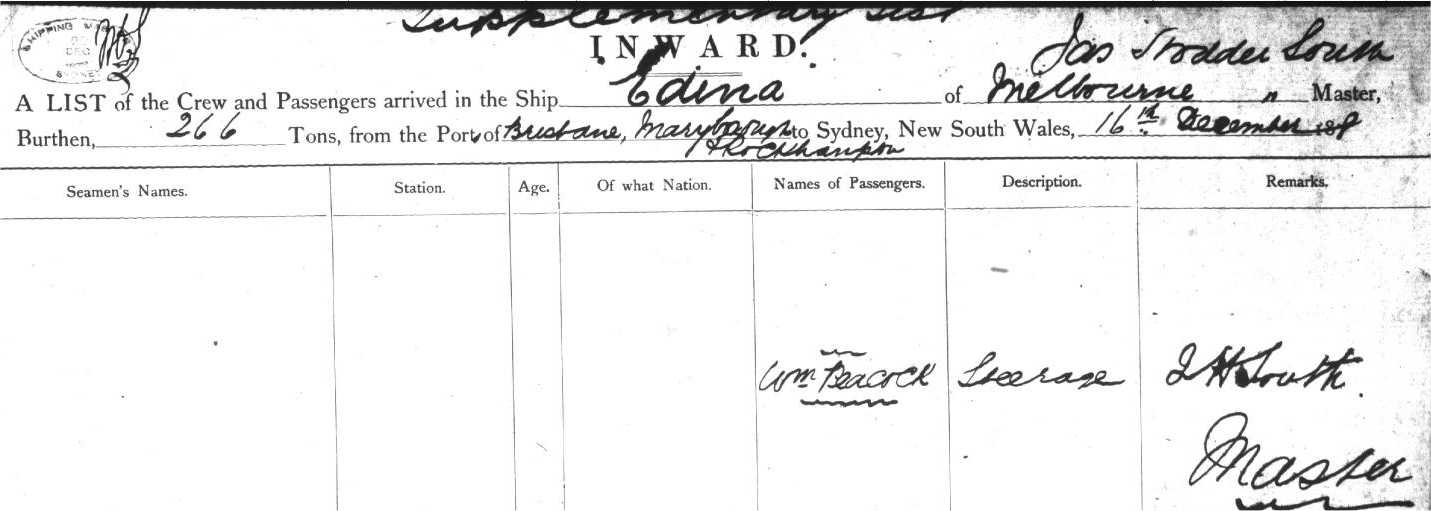 Supplementary List
INWARD.
SHIPPING
DEC
SYDNEY
Jas Stodder South
A LIST of the Crew and Passengers arrived in the Ship Edina of Melbourne " Master,
Burthen, 266 Tons, from the Port of Brisbane, Maryborough to Sydney, New South Wales, 16th December 18
& Rockhampton
Seamen's Names. Station. Age. Of what Nation. Names of Passengers. Description. Remarks.
Wm Peacock Steerage South
Master